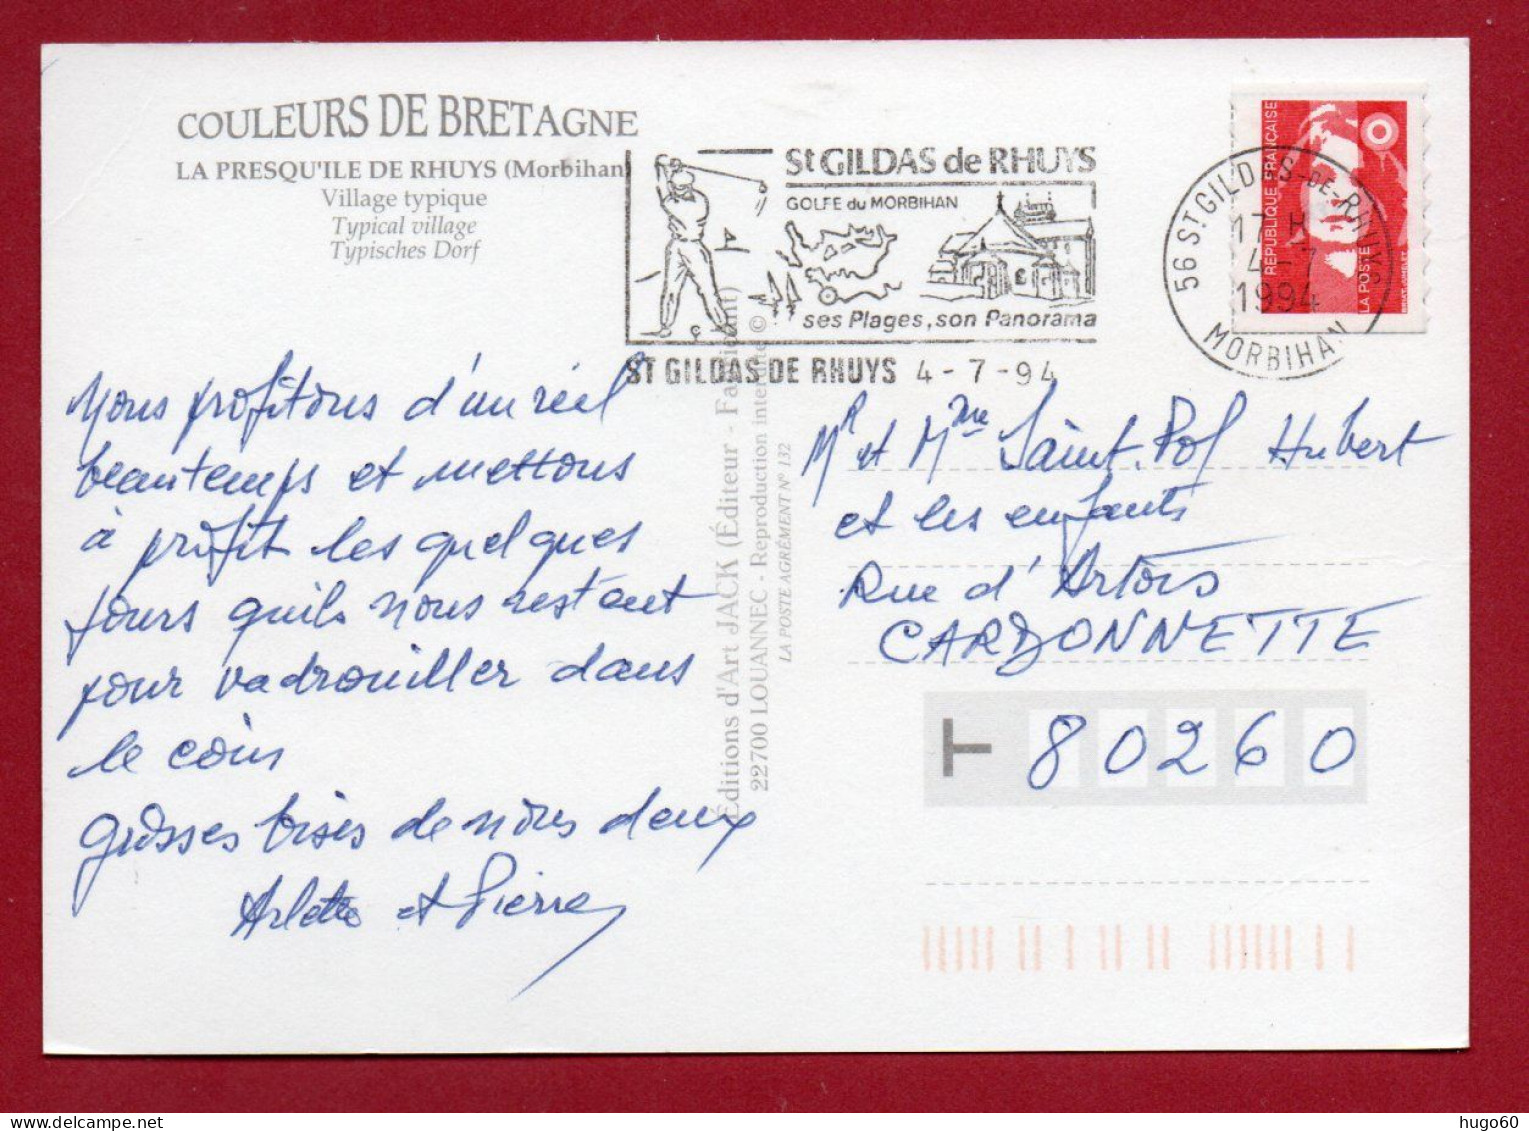 COULEURS DE BRETAGNE
LA PRESQU'ILE DE RHUYS (Morbihan)
Village typique
Typical village
Typisches Dorf
St GILDAS de RHUYS
GOLFE du MORBIHAN
ses Plages, son Panorama
ST GILDAS DE RHUYS 4-7-94
56 ST GILDAS-DE-RHUYS
17 H
4-7
1994
MORBIHAN
REPUBLIQUE FRANÇAISE
LA POSTE
Nous profitons d'un réel
beautemps et mettons
à profit les quelques
jours quils nous restent
pour vadrouiller dans
le coin
grosses bises de nous deux
Arlette et Pierre
Éditions d'Art JACK (Éditeur - Fabricant)
22700 LOUANNEC - Reproduction interdite ©
LA POSTE AGRÉMENT N° 132
Mr et Mme Saint.Pol Hubert
et les enfants
Rue d'Artois
CARDONNETTE
80260
hugo60